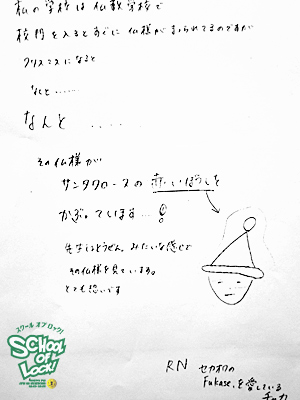 私の学校は仏教学校で
校門を入るとすぐに仏様がまつられてるのですが
クリスマスになると
なんと……
なんと ....
その仏様が
サンタクロースの赤いぼうしを
かぶっています…!
先生もとうぜん。みたいな感じで
その仏様を見ています。
とても恐いです
スクール オブ ロック!
SCHOOL OF LOCK!
RN セカオワの
Fukase.を愛している